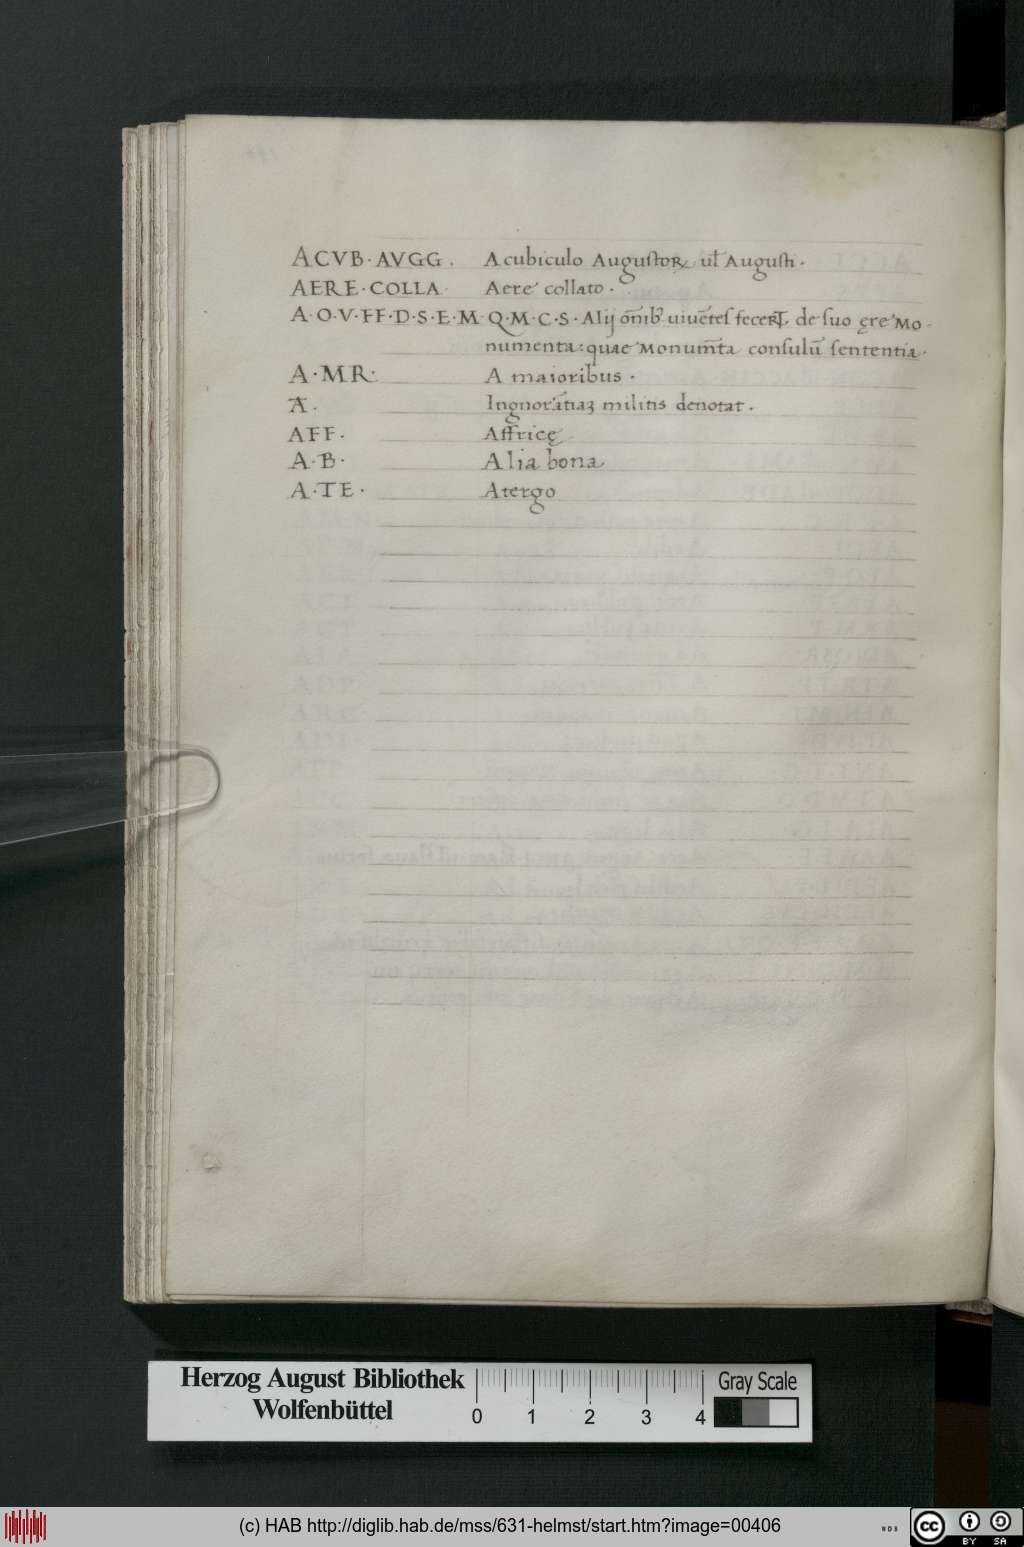 ACVB·AVGG. A cubiculo Augustoꝝ ul̄ Augusti·
AERE·COLLA· Aere collato·
A·O·V·FF·D·S·E·M·Q·M·C·S· Alij om̄ib' uiuētes fecert̄ de suo ęre Mo-
numenta: quae Monum̄ta consulū sententia·
A·MR· A maioribus·
Ā. Ingnorātiaꝫ militis denotat.
AFF. Affricę
A·B· Alia bona
A·TE· Atergo
Herzog August Bibliothek
Wolfenbüttel
0 1 2 3 4
Gray Scale
(c) HAB http://diglib.hab.de/mss/631-helmst/start.htm?image=00406
WDB
cc BY SA